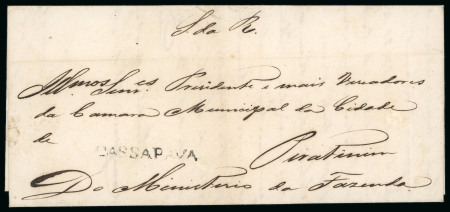 S. da R.
Illmos Senres Prezidente e mais Vereadores
da Camara Municipal da Cidade
de
CASSAPAVA
Piratinim
Do Ministerio da Fazenda